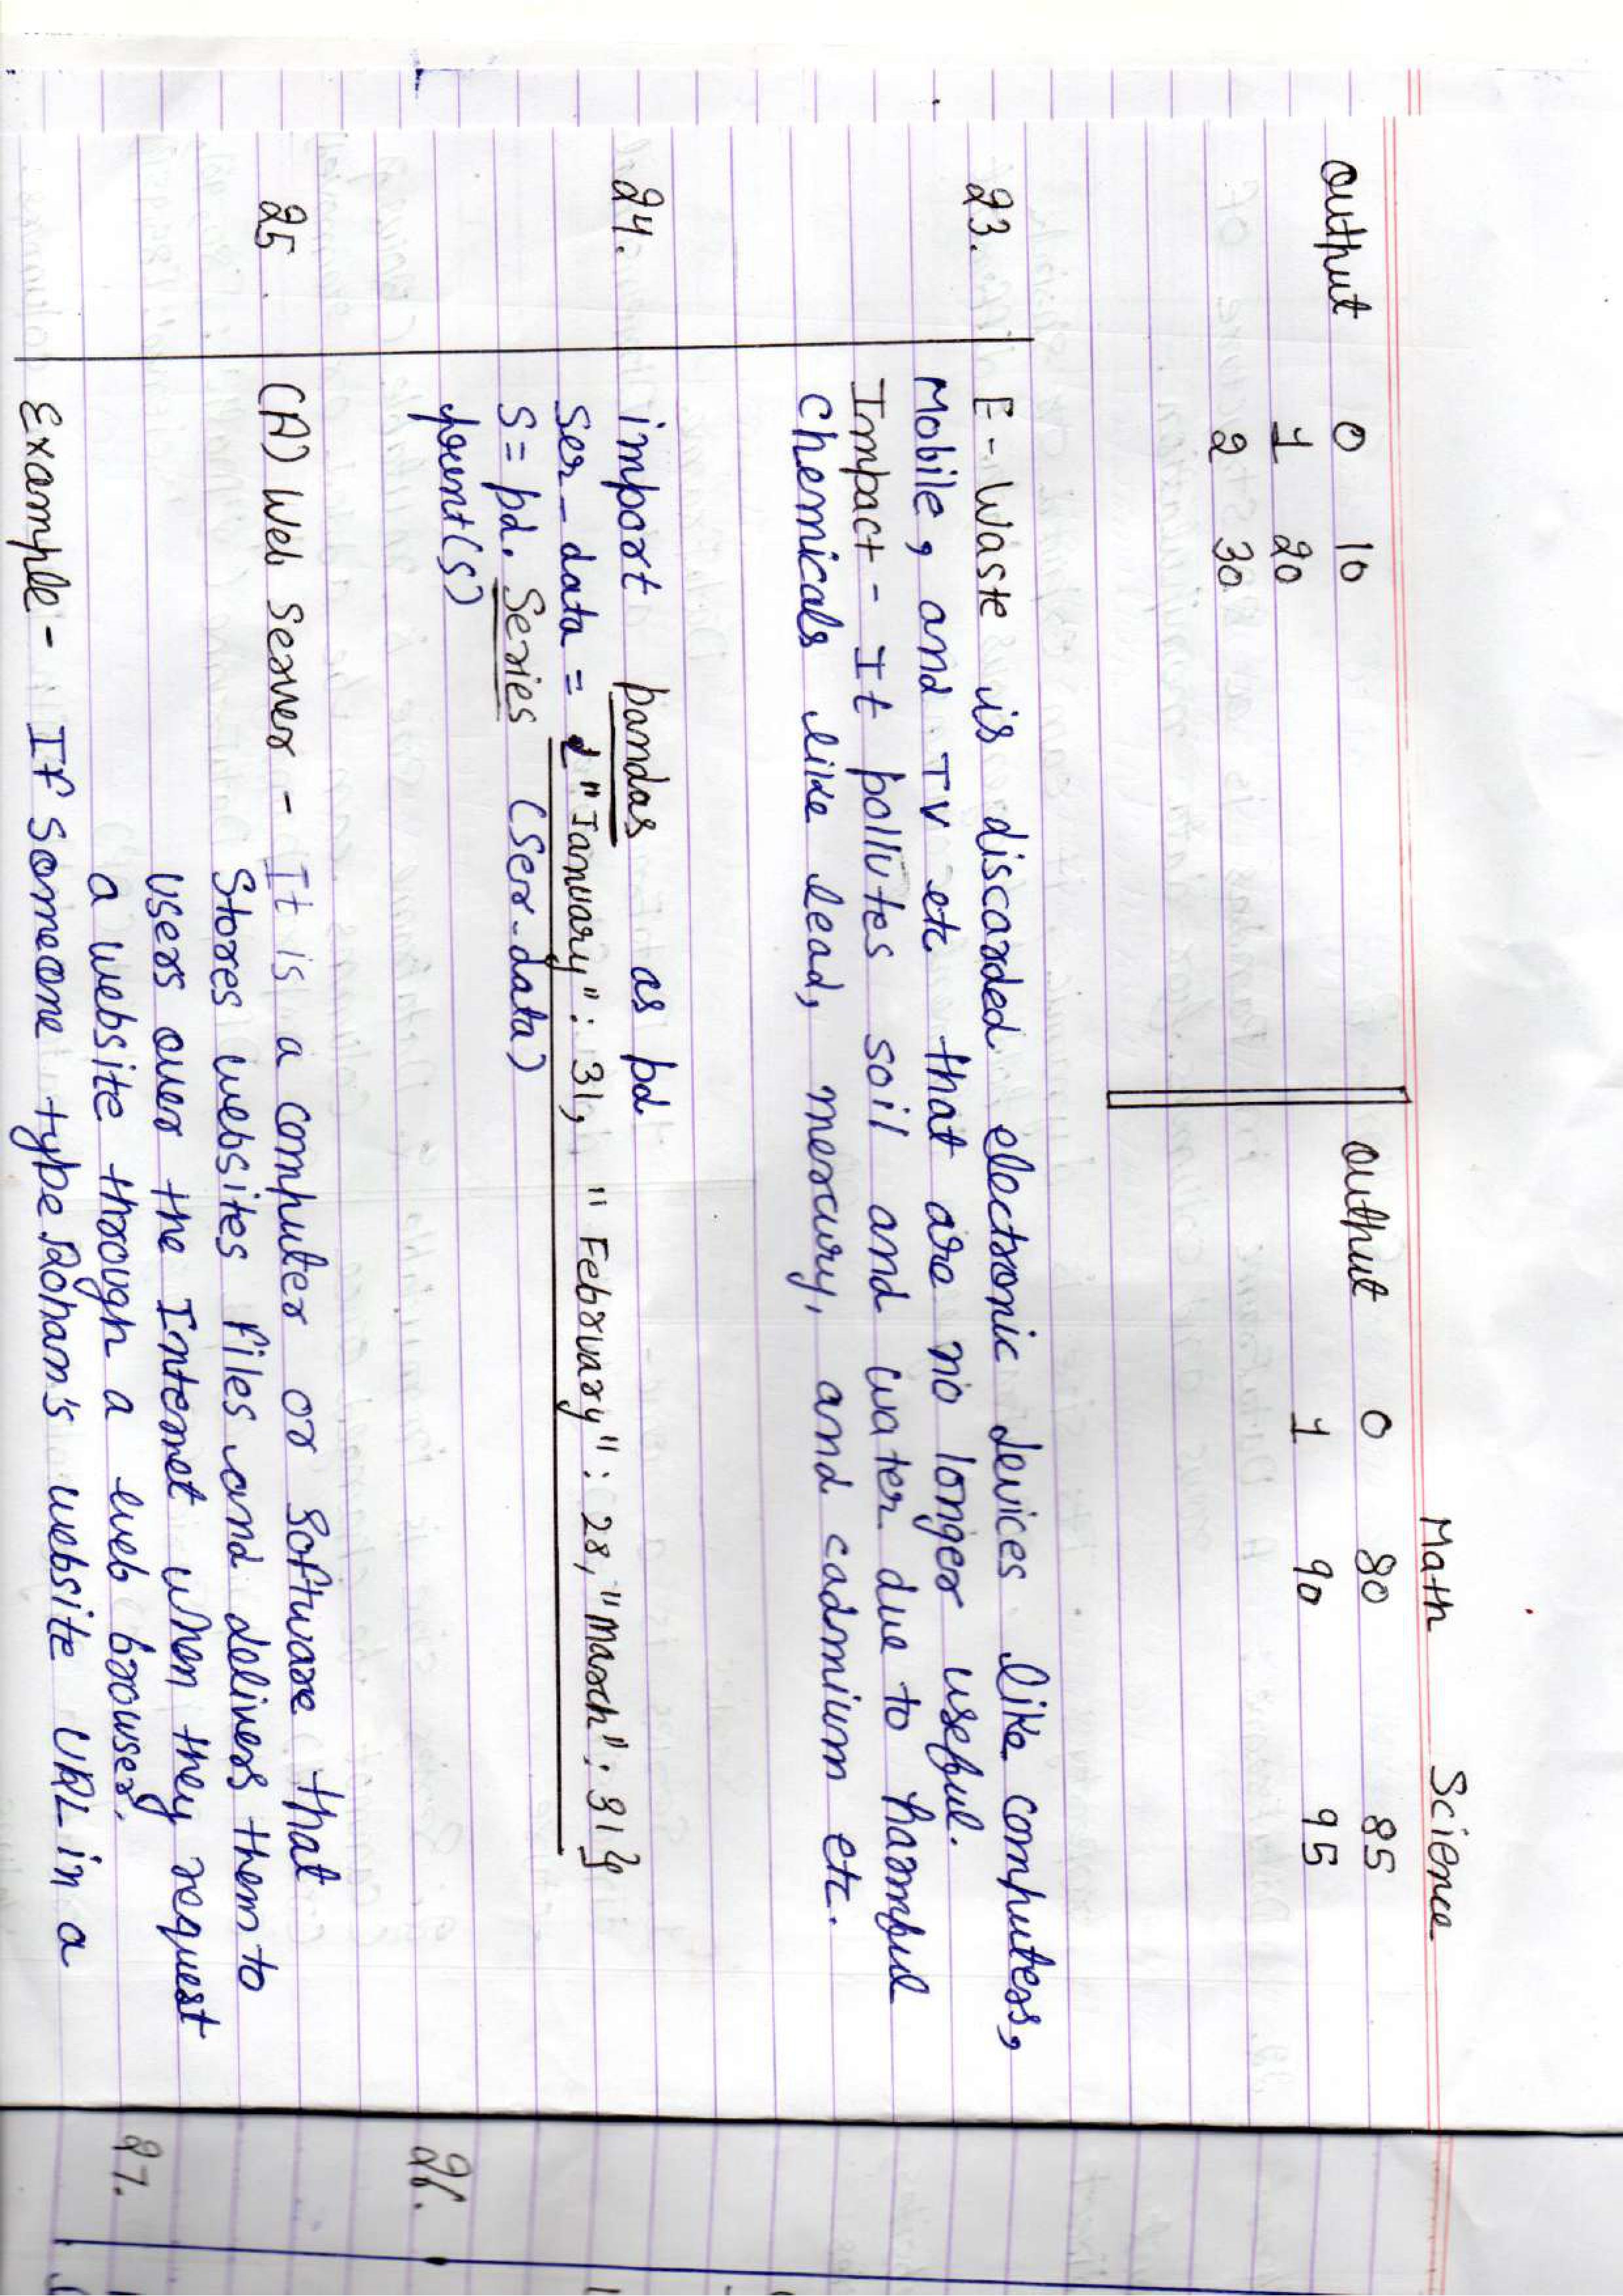 Math Science
Output 0 10
1 20
2 30
Output 0 80 85
1 90 95
23. E-Waste is discarded electronic devices like computers,
Mobile, and TV etc that are no longer useful.
Impact - It pollutes soil and water due to harmful
chemicals like lead, mercury, and cadmium etc.
24. import pandas as pd
ser_data = {"January": 31, "February": 28, "March": 31}
S = pd. Series (ser_data)
print(S)
25. (A) Web Server - It is a computer or Software that
Stores websites files and delivers them to
users over the Internet when they request
a website through a web browser.
Example - If Someone type Rohan's website URL in a
26.
27.